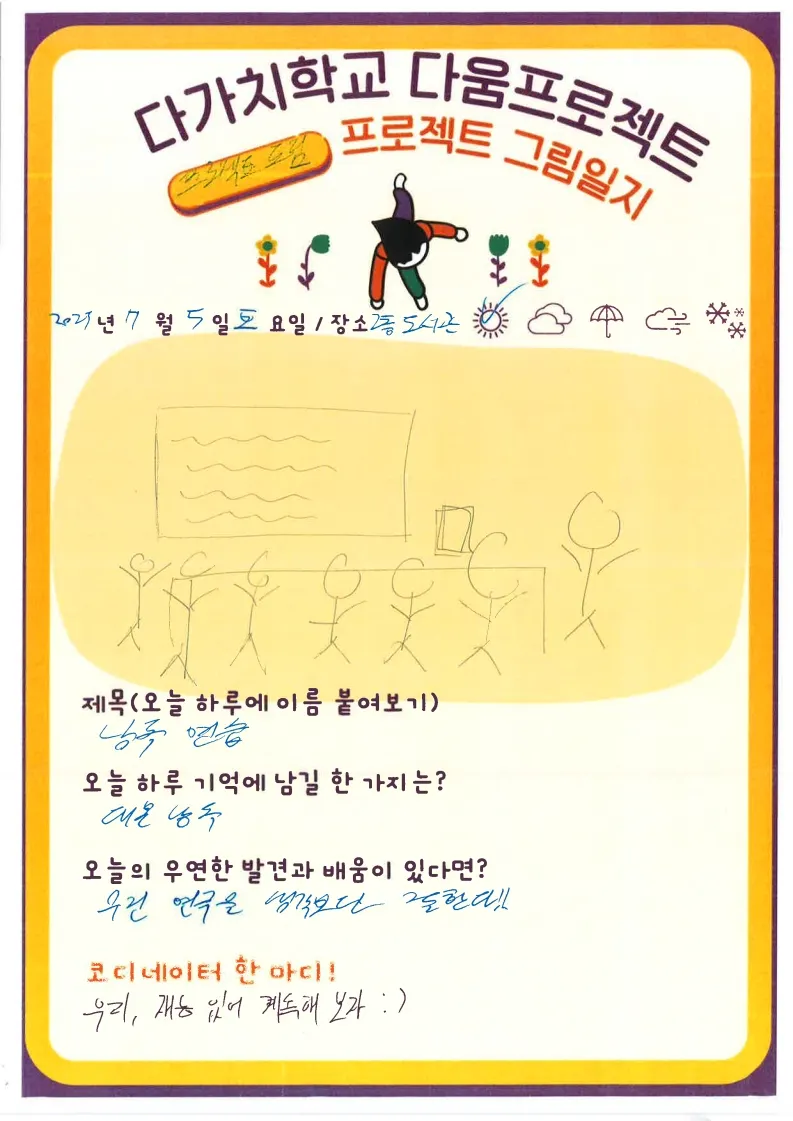 다가치학교 다움프로젝트
프로젝트 그림일지
프로젝트 드림
2025년 7월 5일 토요일 / 장소 2층 도서관
제목(오늘 하루에 이름 붙여보기)
낭독 연습
오늘 하루 기억에 남길 한 가지는?
대본 낭독
오늘의 우연한 발견과 배움이 있다면?
우린 연극을 생각보다 잘한다!!
코디네이터 한 마디!
우리, 재능 있어 계속해 보자 :)